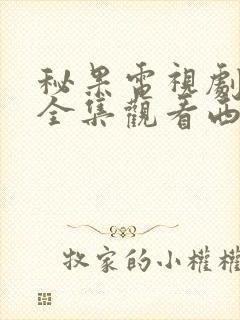 秘果電視劇
全集觀看西
牧家的小權權